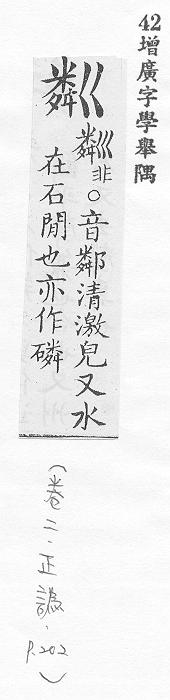 42增廣字學舉隅
粼
非○音鄰清激皃又水
在石閒也亦作磷
（卷二·正譌，P.202）